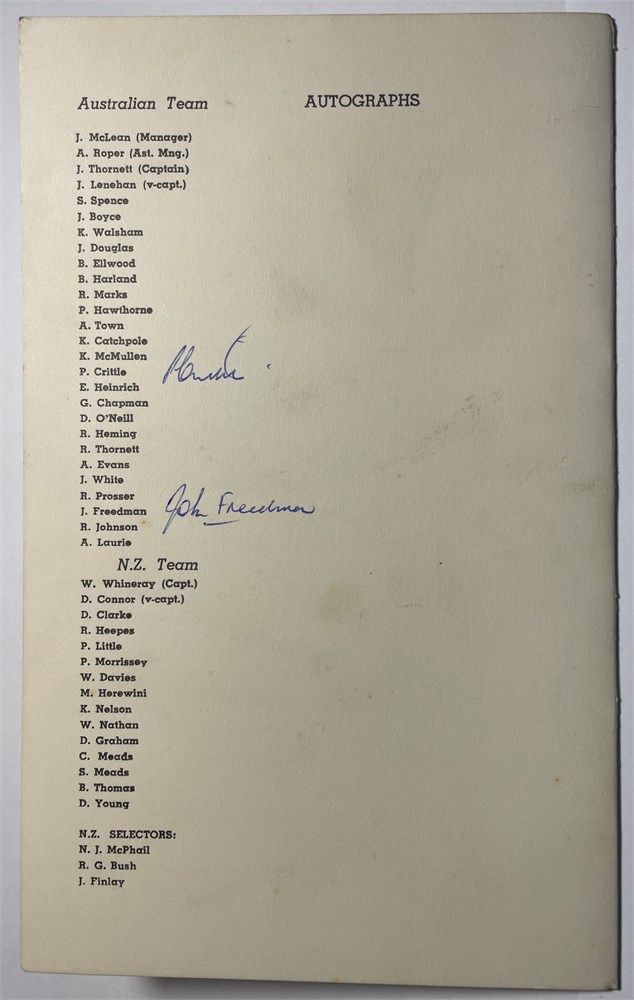 Australian Team
AUTOGRAPHS
J. McLean (Manager)
A. Roper (Ast. Mng.)
J. Thornett (Captain)
J. Lenehan (v-capt.)
S. Spence
J. Boyce
K. Walsham
J. Douglas
B. Ellwood
B. Harland
R. Marks
P. Hawthorne
A. Town
K. Catchpole
K. McMullen
P. Crittle
E. Heinrich
G. Chapman
D. O'Neill
R. Heming
R. Thornett
A. Evans
J. White
R. Prosser
J. Freedman John Freedman
R. Johnson
A. Laurie
N.Z. Team
W. Whineray (Capt.)
D. Connor (v-capt.)
D. Clarke
R. Heepes
P. Little
P. Morrissey
W. Davies
M. Herewini
K. Nelson
W. Nathan
D. Graham
C. Meads
S. Meads
B. Thomas
D. Young
N.Z. SELECTORS:
N. J. McPhail
R. G. Bush
J. Finlay